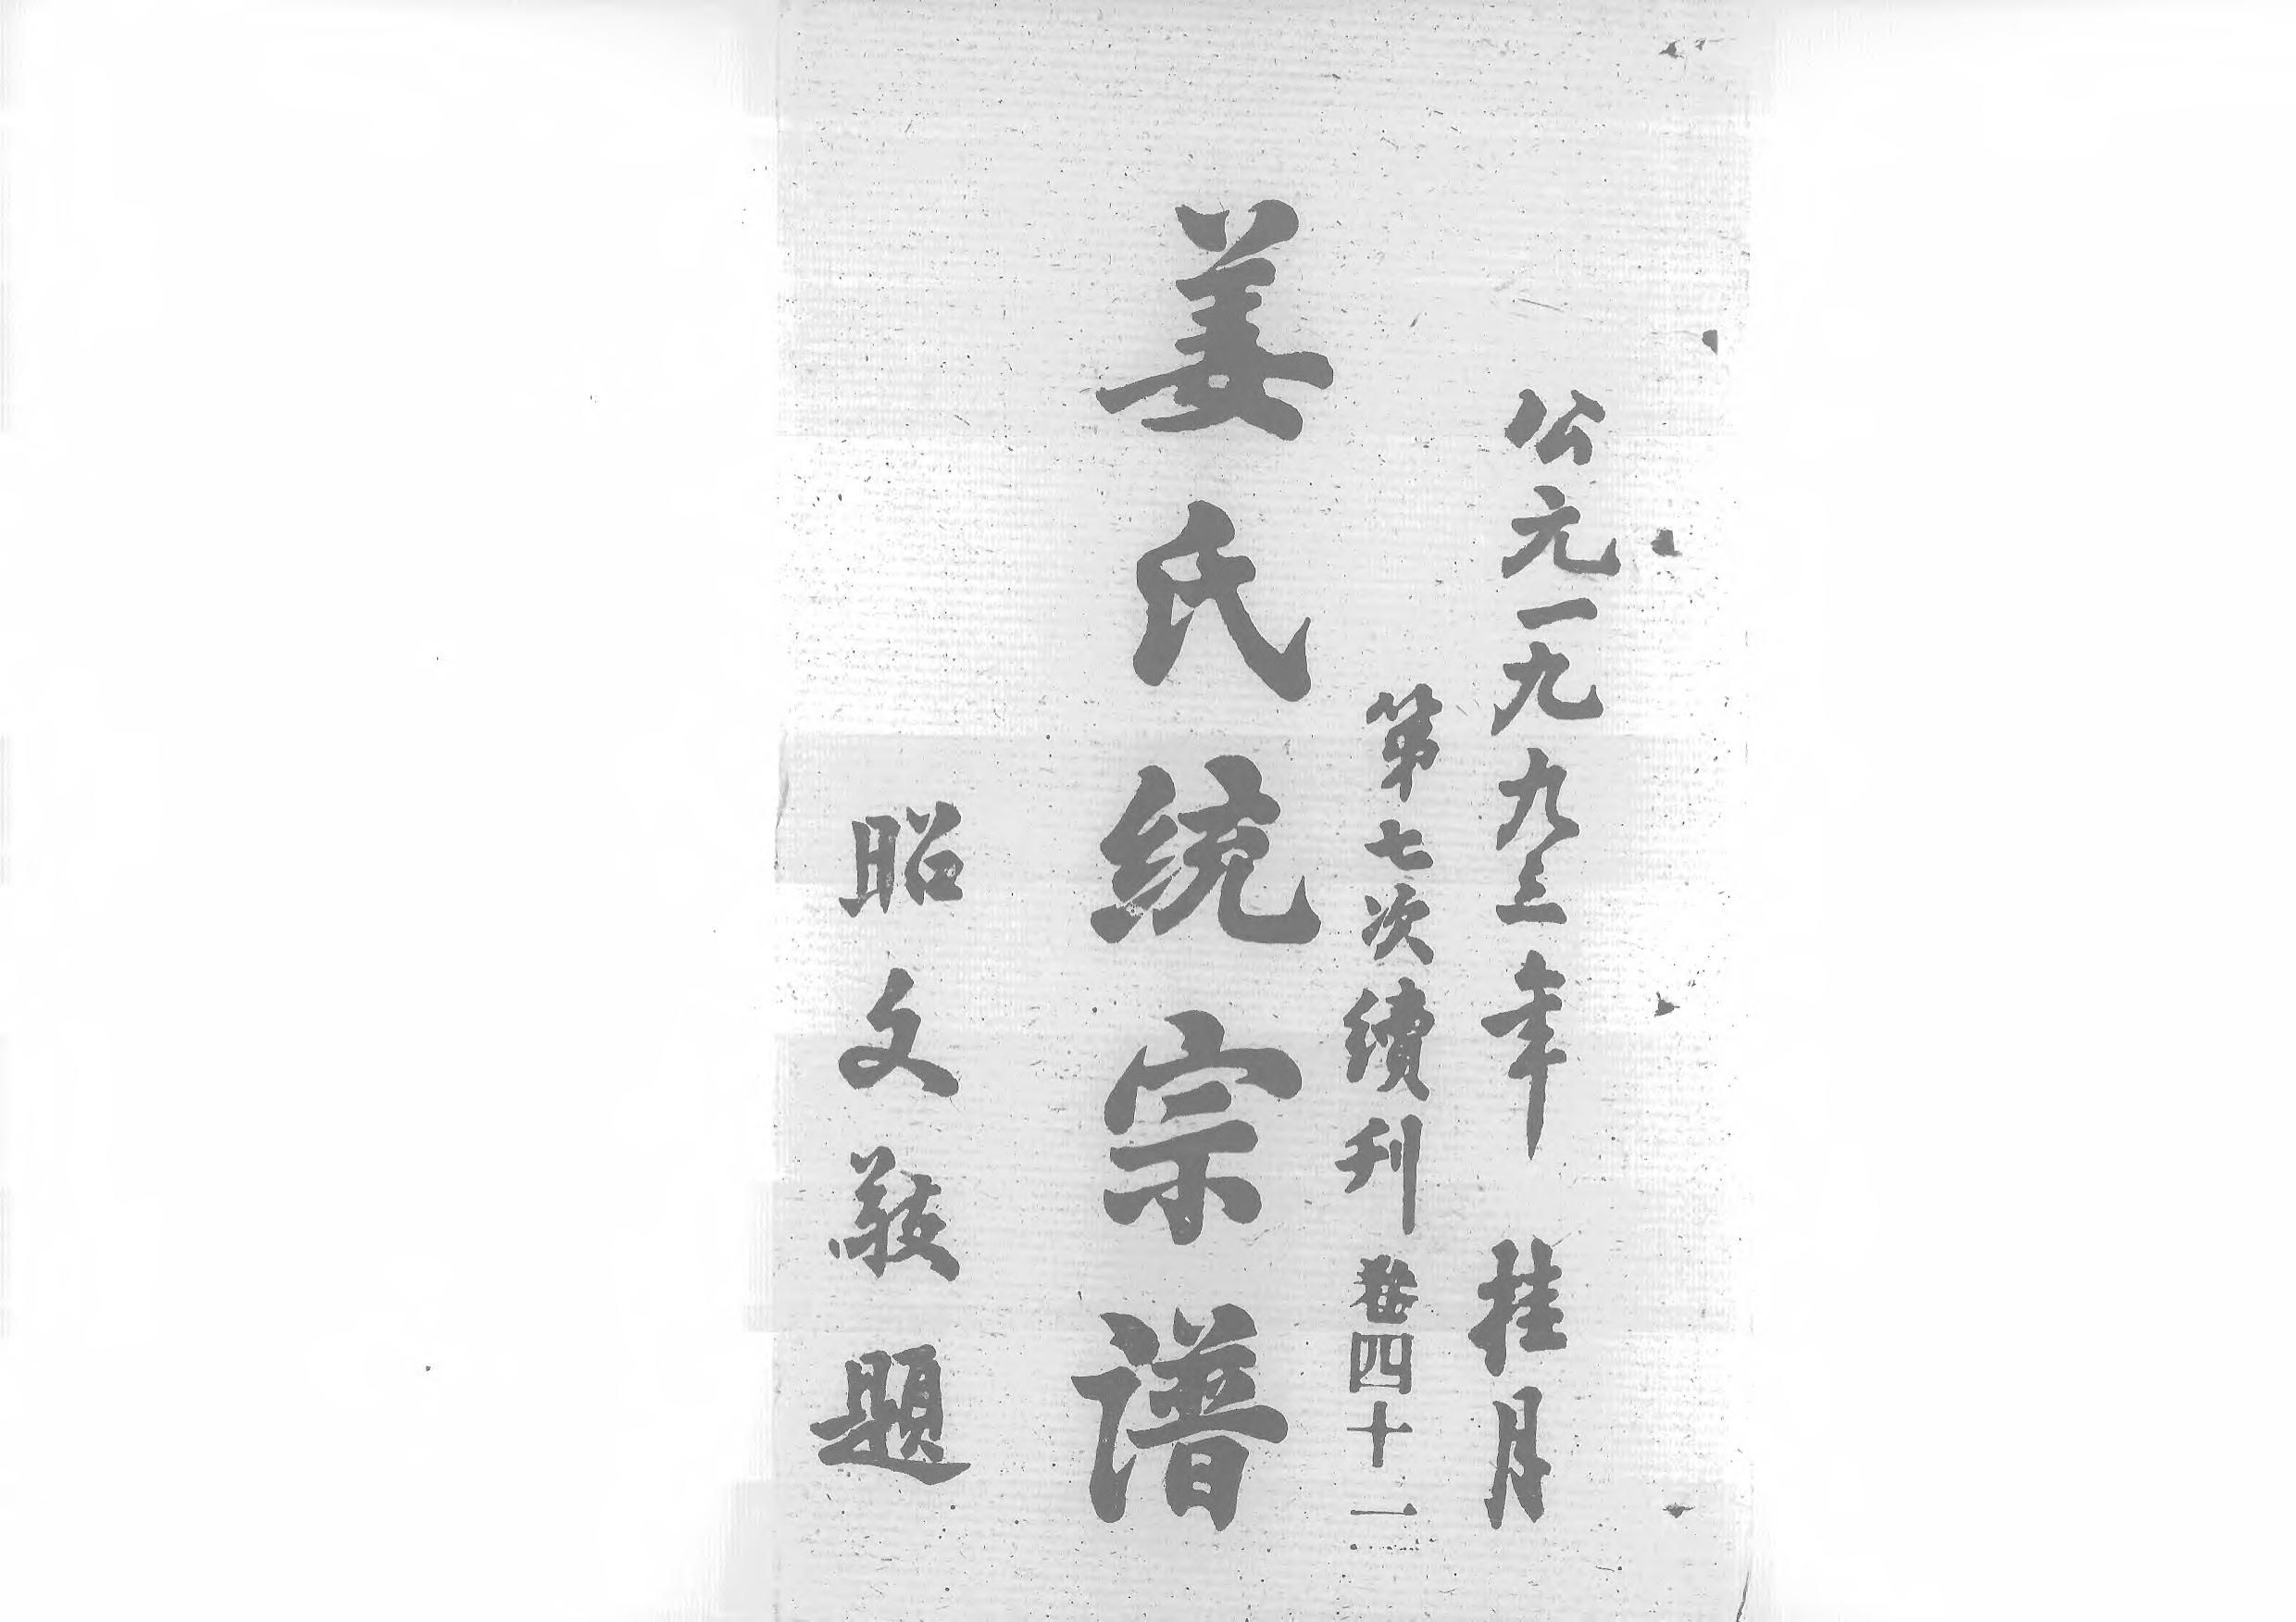 公元一九九三年 桂月
第七次續刊 卷四十一
姜氏統宗譜
昭文敬題